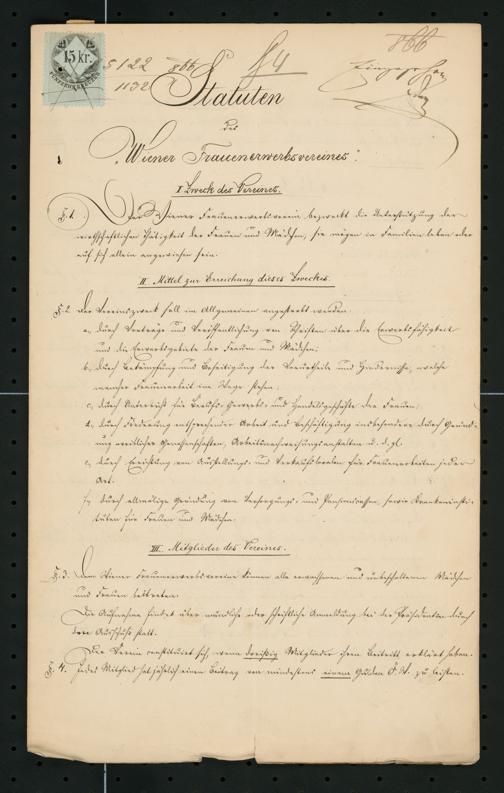 15 kr.
5122 866 § 4 866
1132
Statuten
des
„Wiener Frauenerwerbsvereines“.
I Zweck des Vereines.
§. 1. Der Wiener Frauenerwerbverein bezweckt die Unterstützung der
wirthschaftlichen Thätigkeit der Frauen und Mädchen, sie mögen in Familien leben oder
auf sich allein angewiesen sein.
II. Mittel zur Erreichung dieses Zweckes.
§. 2. Der Vereinszweck soll im Allgemeinen angestrebt werden
a, durch Vorträge und Veröffentlichung von Schriften über die Erwerbsfähigkeit
und die Erwerbsgebiete der Frauen und Mädchen;
b, durch Bekämpfung und Beseitigung der Vorurtheile und Hindernisse, welche
mancher Frauenarbeit im Wege stehen;
c, durch Unterricht für Berufs- Gewerbs- und Handelsgeschäfte der Frauen;
d, durch Förderung entsprechender Arbeit und Beschäftigung insbesondere durch Gründ-
ung weiblicher Genossenschaften, Arbeitsnachweisungsanstalten u. d. gl.
e, durch Errichtung von Ausstellungs- und Verkaufslocalen für Frauenarbeiten jeder
Art.
f, durch allmälige Gründung von Versorgungs- und Pensionscassen, sowie Krankeninsti-
tuten für Frauen und Mädchen.
III. Mitglieder des Vereines.
§. 3. Dem Wiener Frauenerwerbvereine können alle erwachsenen und unbescholtenen Mädchen
und Frauen beitreten.
Die Aufnahme findet über mündliche oder schriftliche Anmeldung bei der Präsidentin durch
den Ausschuß statt.
Der Verein constituirt sich, wenn dreißig Mitglieder ihren Beitritt erklärt haben.
§. 4. Jedes Mitglied hat jährlich einen Beitrag von mindestens einem Gulden Ö. W. zu leisten.